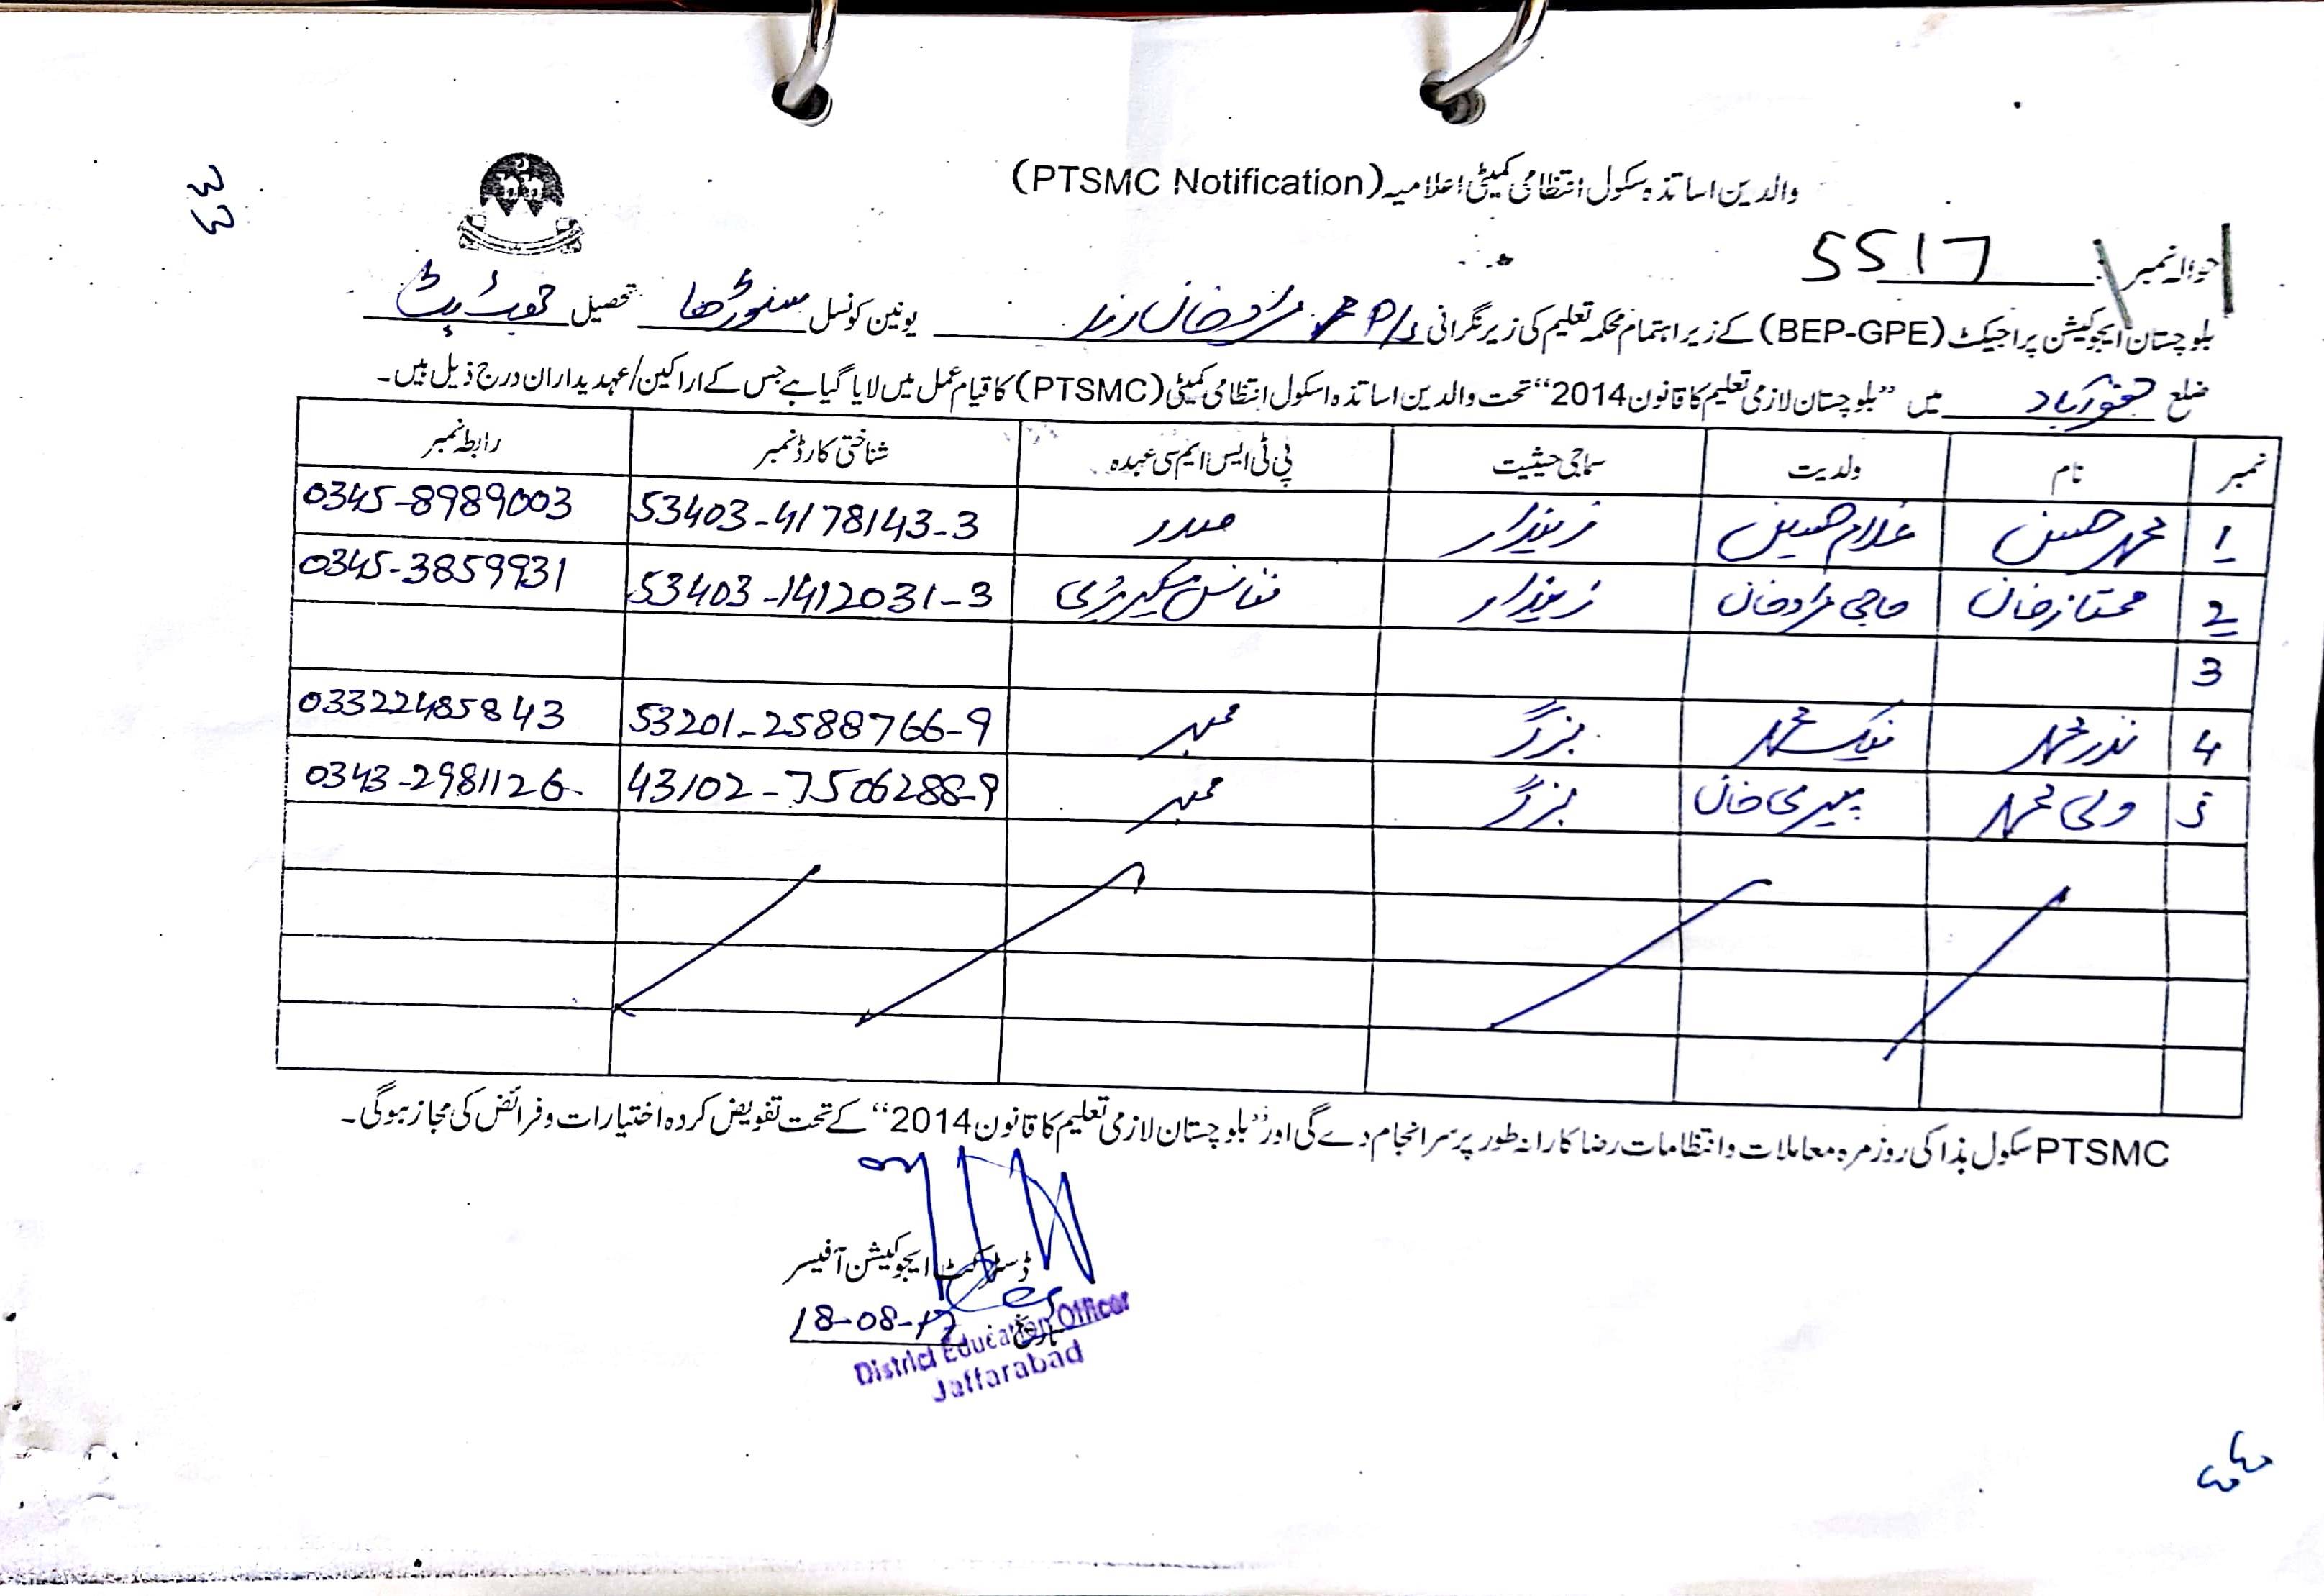 33
والدین اساتذہ سکول انتظامی کمیٹی اعلامیہ (PTSMC Notification)
حوالہ نمبر: 5517
بلوچستان ایجوکیشن پراجیکٹ (BEP-GPE) کے زیر اہتمام محکمہ تعلیم کی زیر نگرانی P/s مراد خان رند یونین کونسل تحصیل
ضلع جعفرآباد میں ”بلوچستان لازمی تعلیم کا قانون 2014“ تحت والدین اساتذہ اسکول انتظامی کمیٹی (PTSMC) کا قیام عمل میں لایا گیا ہے جس کے اراکین/عہدیداران درج ذیل ہیں۔
نمبر نام ولدیت سماجی حیثیت پی ٹی ایس ایم سی عہدہ شناختی کارڈ نمبر رابطہ نمبر
1 محمد حسن غلام حسین زمیندار صدر 53403-4178143-3 0345-8989003
2 ممتاز خان حاجی مراد خان زمیندار فنانس سیکریٹری 53403-1412031-3 0345-3859931
3
4 نذر محمد نیک محمد بزگر ممبر 53201-2588766-9 03322485843
5 ولی محمد پیری خان بزگر ممبر 43102-7506288-9 0343-2981126
PTSMC سکول ہذا کی روزمرہ معاملات و انتظامات رضاکارانہ طور پر سرانجام دے گی اور ”بلوچستان لازمی تعلیم کا قانون 2014“ کے تحت تفویض کردہ اختیارات و فرائض کی مجاز ہوگی۔
ڈسٹرکٹ ایجوکیشن آفیسر
تاریخ: 18-08-17
District Education Officer
Jaffarabad
33